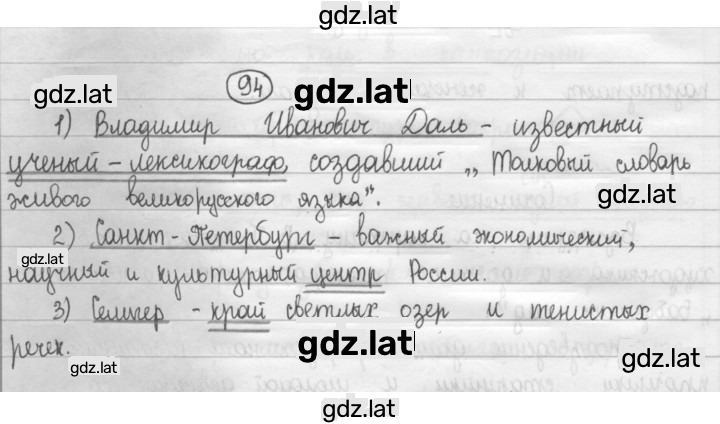 gdz.lat
94
gdz.lat
gdz.lat
1) Владимир Иванович Даль - известный
ученый - лексикограф, создавший „Толковый словарь
живого великорусского языка".
2) Санкт-Петербург - важный экономический,
gdz.lat
научный и культурный центр России.
3) Селигер - край светлых озер и тенистых
речек.
gdz.lat
gdz.lat
gdz.lat
gdz.lat